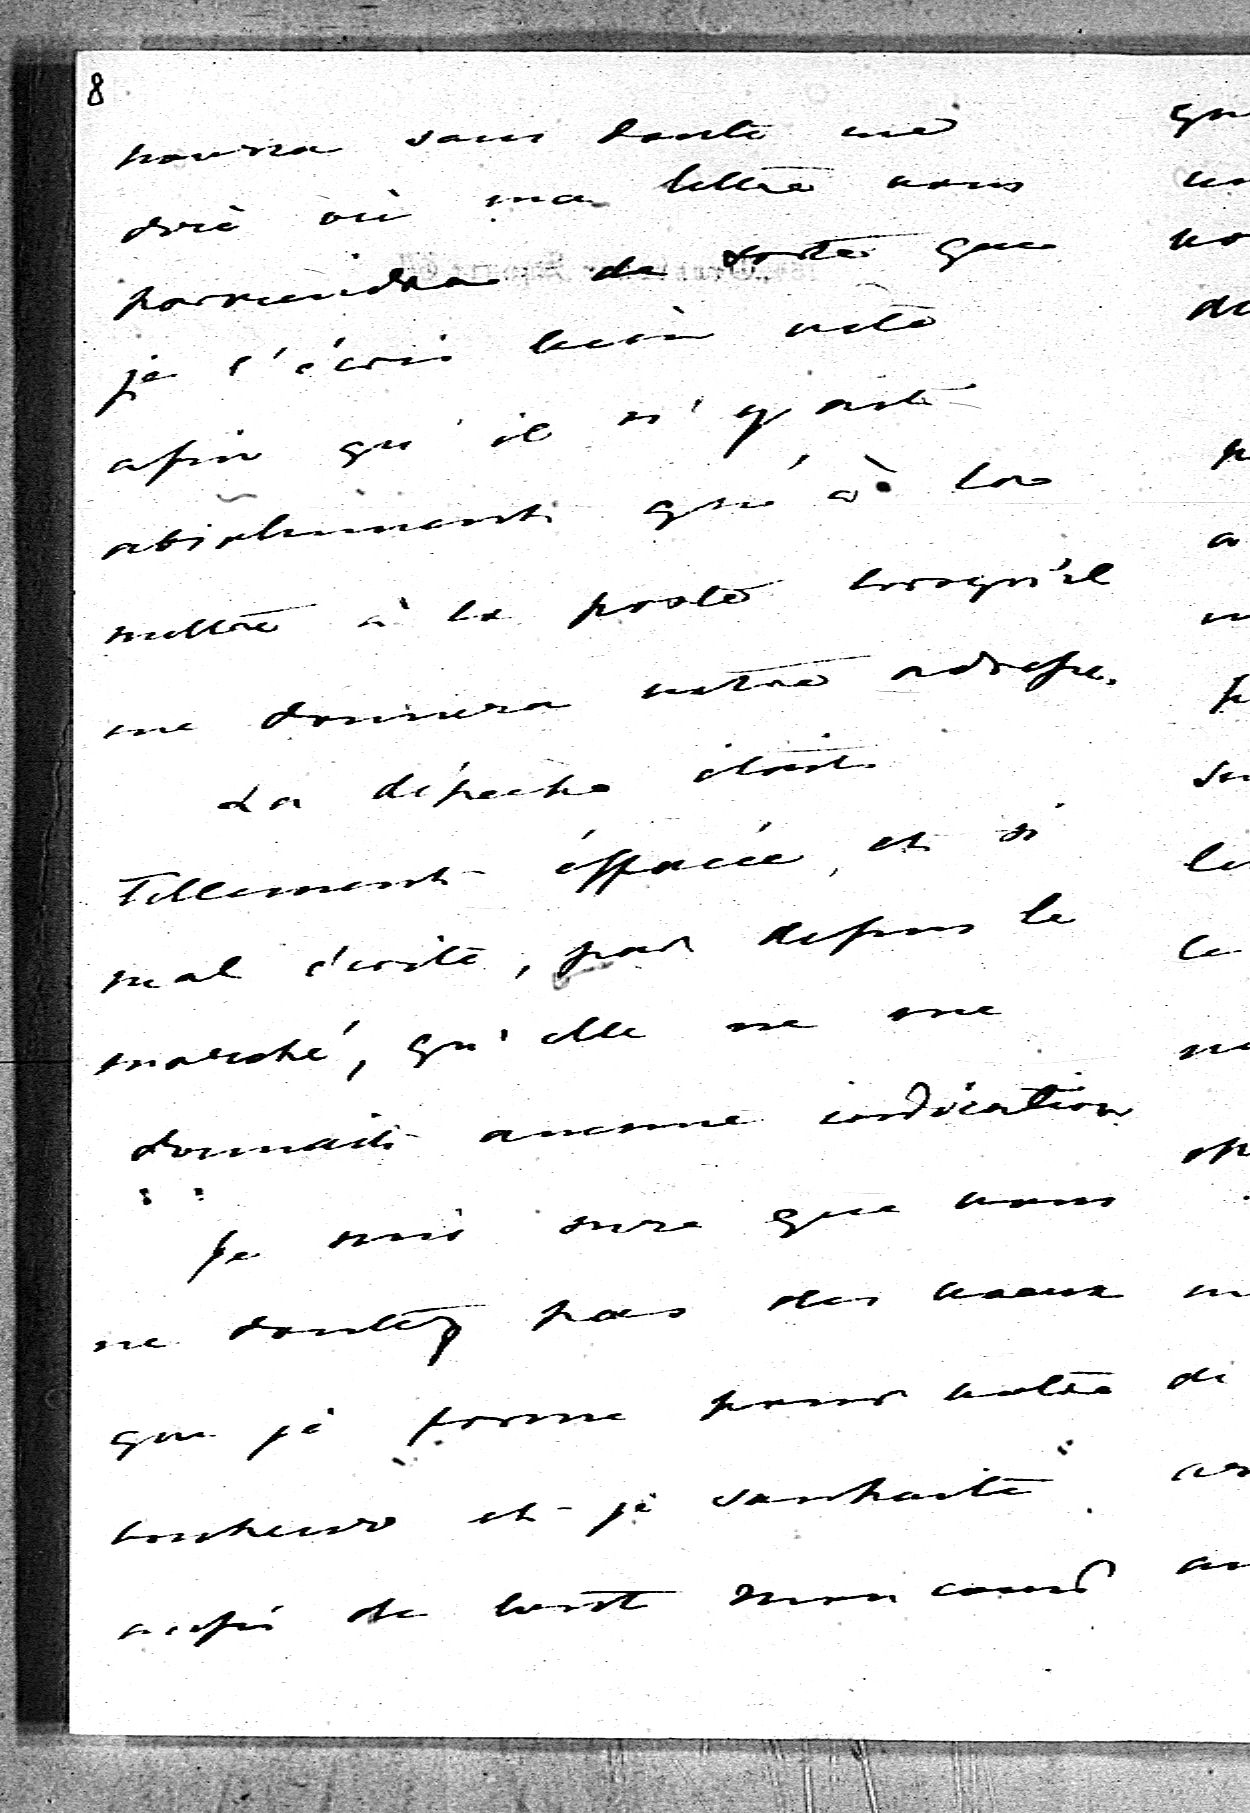 8
pourra sans doute me
dire où ma lettre vous
parviendra de sorte que
je l'écris bien vite
afin qu'il n'y ait
absolument qu'à la
mettre à la poste lorsqu'il
me donnera votre adresse.
La dépeche était
tellement éffacée, et si
mal écrite, par dessus le
marché, qu'elle ne me
donnait aucune indication
Je suis sure que vous
ne doutez pas des voeux
que je forme pour votre
bonheur et je souhaite
aussi de tout mon coeur